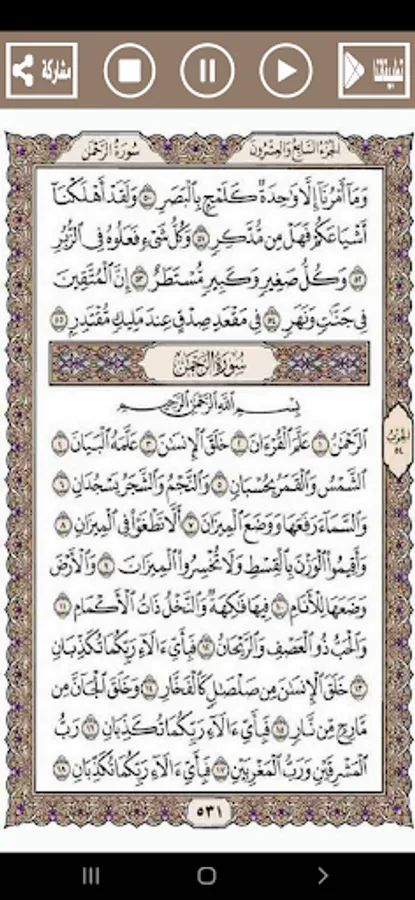 مشاركة
تطبيقاتنا
سُورَةُ الرَّحْمَٰن
الجُزْءُ السَّابِعُ وَالعِشْرُونَ
وَمَآ أَمْرُنَآ إِلَّا وَٰحِدَةٌ كَلَمْحٍۭ بِٱلْبَصَرِ ٥٠ وَلَقَدْ أَهْلَكْنَآ
أَشْيَاعَكُمْ فَهَلْ مِن مُّدَّكِرٍ ٥١ وَكُلُّ شَىْءٍ فَعَلُوهُ فِى ٱلزُّبُرِ
٥٢ وَكُلُّ صَغِيرٍ وَكَبِيرٍ مُّسْتَطَرٌ ٥٣ إِنَّ ٱلْمُتَّقِينَ
فِى جَنَّٰتٍ وَنَهَرٍ ٥٤ فِى مَقْعَدِ صِدْقٍ عِندَ مَلِيكٍ مُّقْتَدِرٍۭ ٥٥
سُورَةُ الرَّحْمَٰن
بِسْمِ ٱللَّهِ ٱلرَّحْمَٰنِ ٱلرَّحِيمِ
ٱلرَّحْمَٰنُ ١ عَلَّمَ ٱلْقُرْءَانَ ٢ خَلَقَ ٱلْإِنسَٰنَ ٣ عَلَّمَهُ ٱلْبَيَانَ ٤
ٱلشَّمْسُ وَٱلْقَمَرُ بِحُسْبَانٍ ٥ وَٱلنَّجْمُ وَٱلشَّجَرُ يَسْجُدَانِ ٦
وَٱلسَّمَآءَ رَفَعَهَا وَوَضَعَ ٱلْمِيزَانَ ٧ أَلَّا تَطْغَوْا۟ فِى ٱلْمِيزَانِ ٨
وَأَقِيمُوا۟ ٱلْوَزْنَ بِٱلْقِسْطِ وَلَا تُخْسِرُوا۟ ٱلْمِيزَانَ ٩ وَٱلْأَرْضَ
وَضَعَهَا لِلْأَنَامِ ١٠ فِيهَا فَٰكِهَةٌ وَٱلنَّخْلُ ذَاتُ ٱلْأَكْمَامِ ١١
وَٱلْحَبُّ ذُو ٱلْعَصْفِ وَٱلرَّيْحَانُ ١٢ فَبِأَىِّ ءَالَآءِ رَبِّكُمَا تُكَذِّبَانِ
١٣ خَلَقَ ٱلْإِنسَٰنَ مِن صَلْصَٰلٍ كَٱلْفَخَّارِ ١٤ وَخَلَقَ ٱلْجَآنَّ مِن
مَّارِجٍ مِّن نَّارٍ ١٥ فَبِأَىِّ ءَالَآءِ رَبِّكُمَا تُكَذِّبَانِ ١٦ رَبُّ
ٱلْمَشْرِقَيْنِ وَرَبُّ ٱلْمَغْرِبَيْنِ ١٧ فَبِأَىِّ ءَالَآءِ رَبِّكُمَا تُكَذِّبَانِ ١٨
الحزب
٥٤
٥٣١